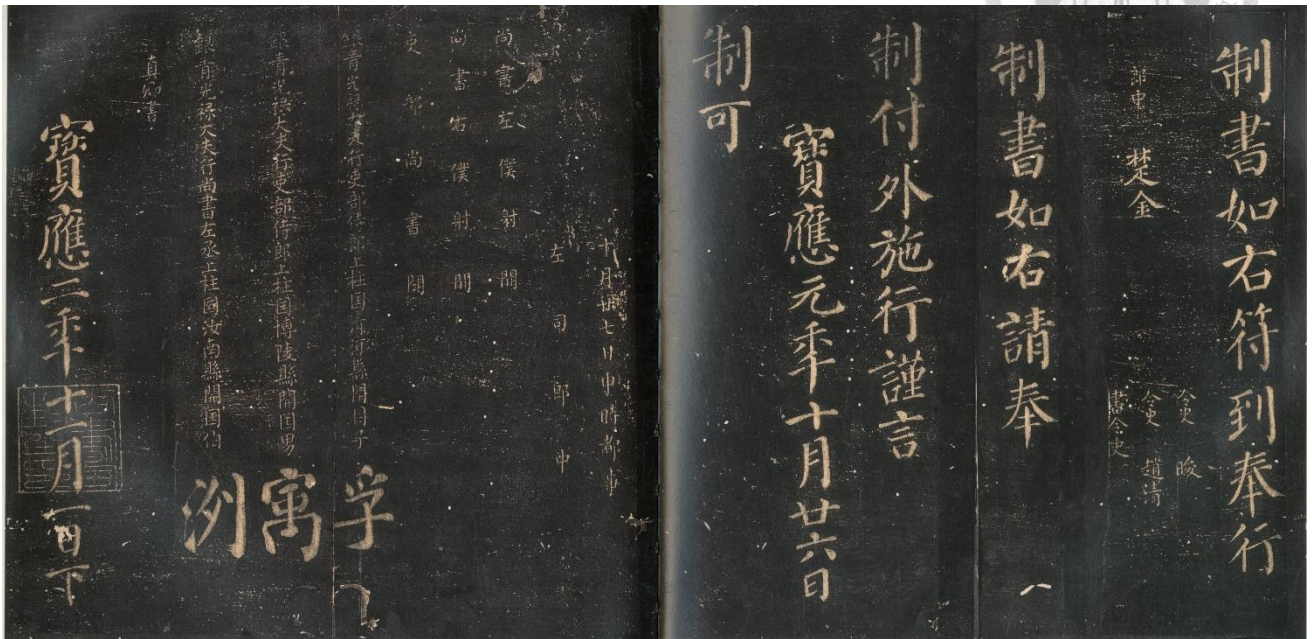 制書如右符到奉行
令史 晙
令史 趙清
書令史
郎中 楚金
制書如右請奉
制付外施行謹言
寶應元年十月廿六日
制可
十月廿七日申時都事
左司郎中
尚書左僕射闕
尚書右僕射闕
吏部尚書闕
銀青光祿大夫行吏部侍郎上柱国 縣開国子 孚
銀青光祿大夫行吏部侍郎上柱国博陵縣開国男 寓
銀青光祿大夫行尚書左丞上柱國汝南縣開国伯 洌
真卿書
寶應二年十一月一日下